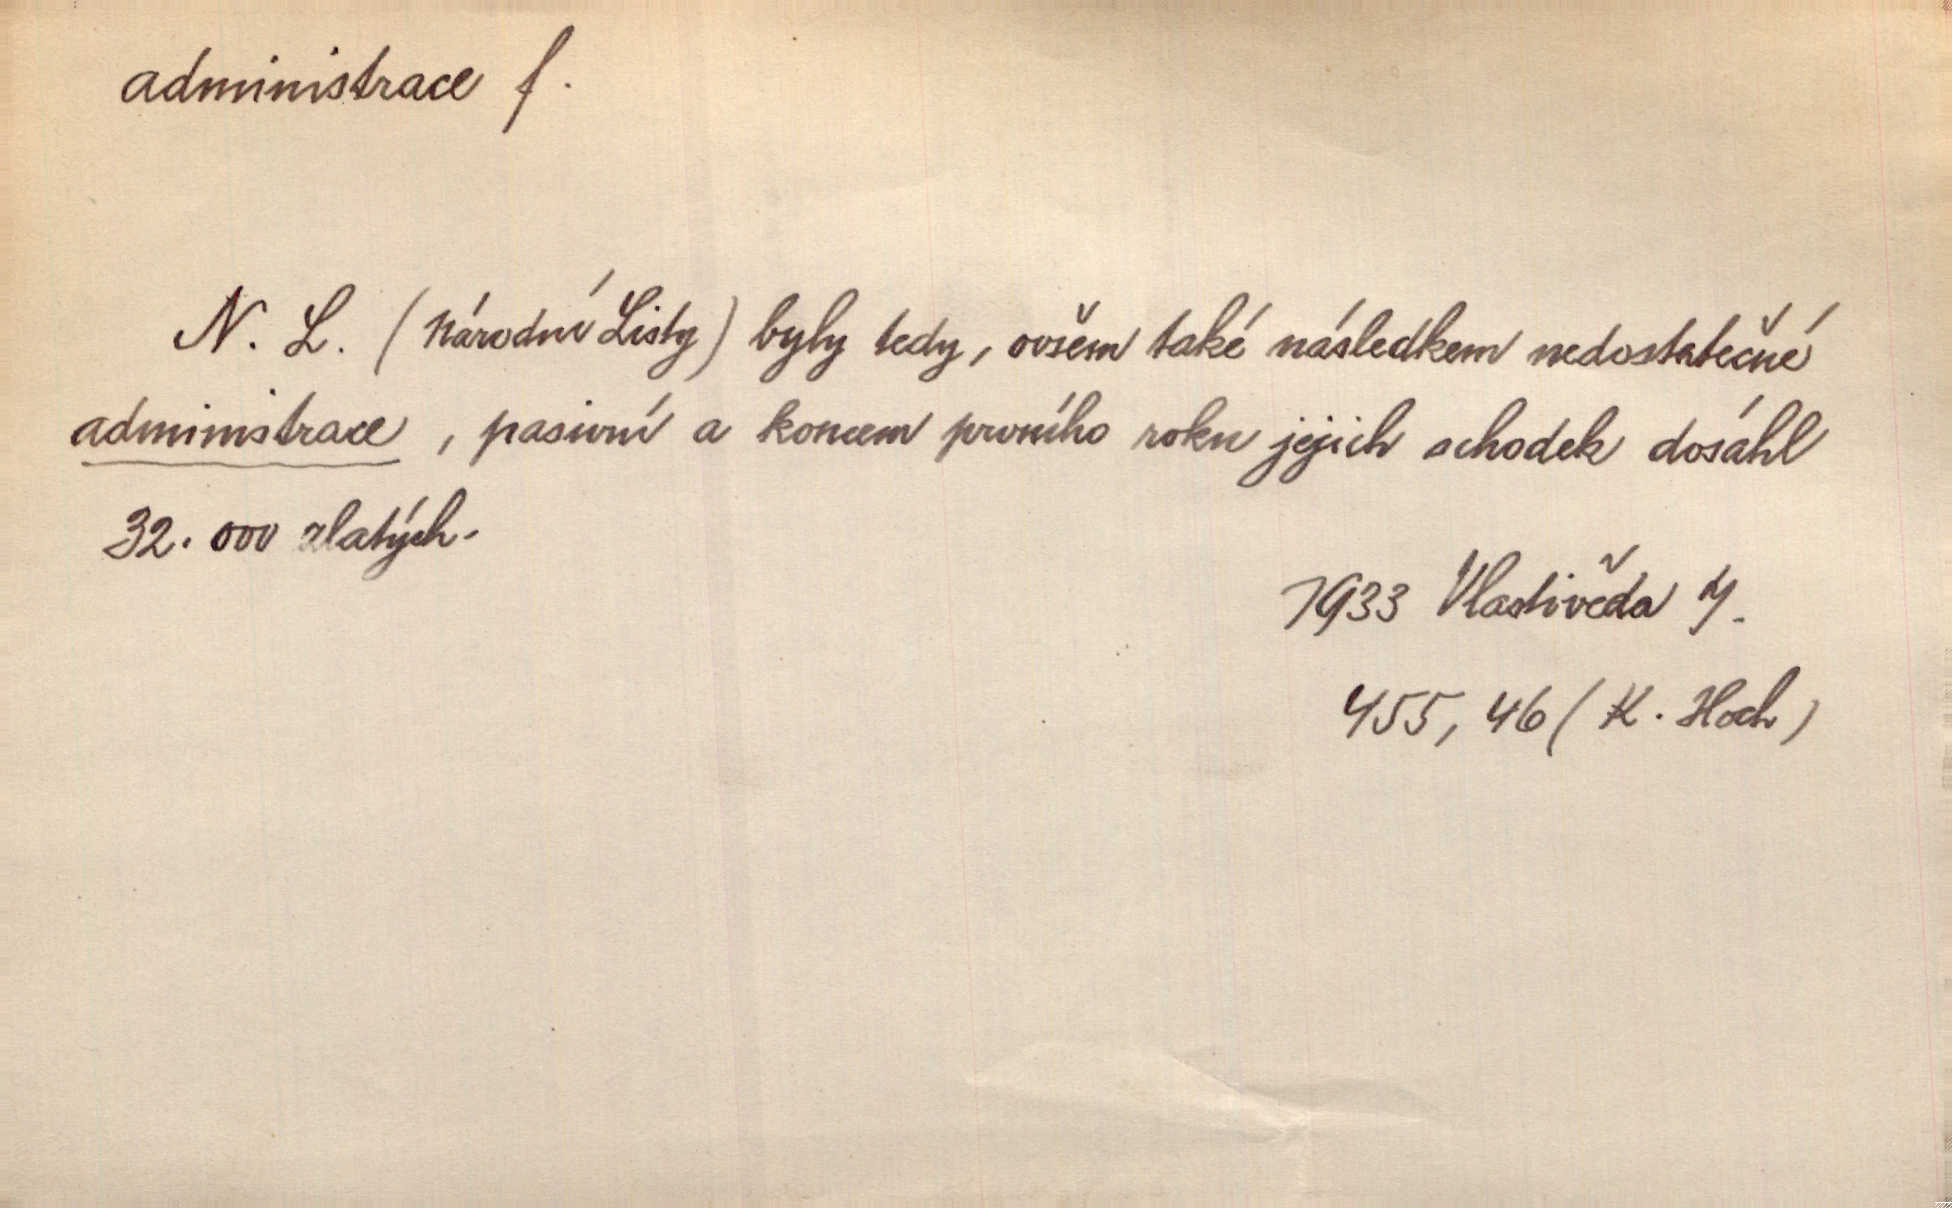 administrace f.
N. L. (Národní Listy) byly tedy, ovšem také následkem nedostatečné
administrace, pasivní a koncem prvního roku jejich schodek dosáhl
32.000 zlatých.
1933 Vlastivěda 7.
455, 46 (K. Hoch)